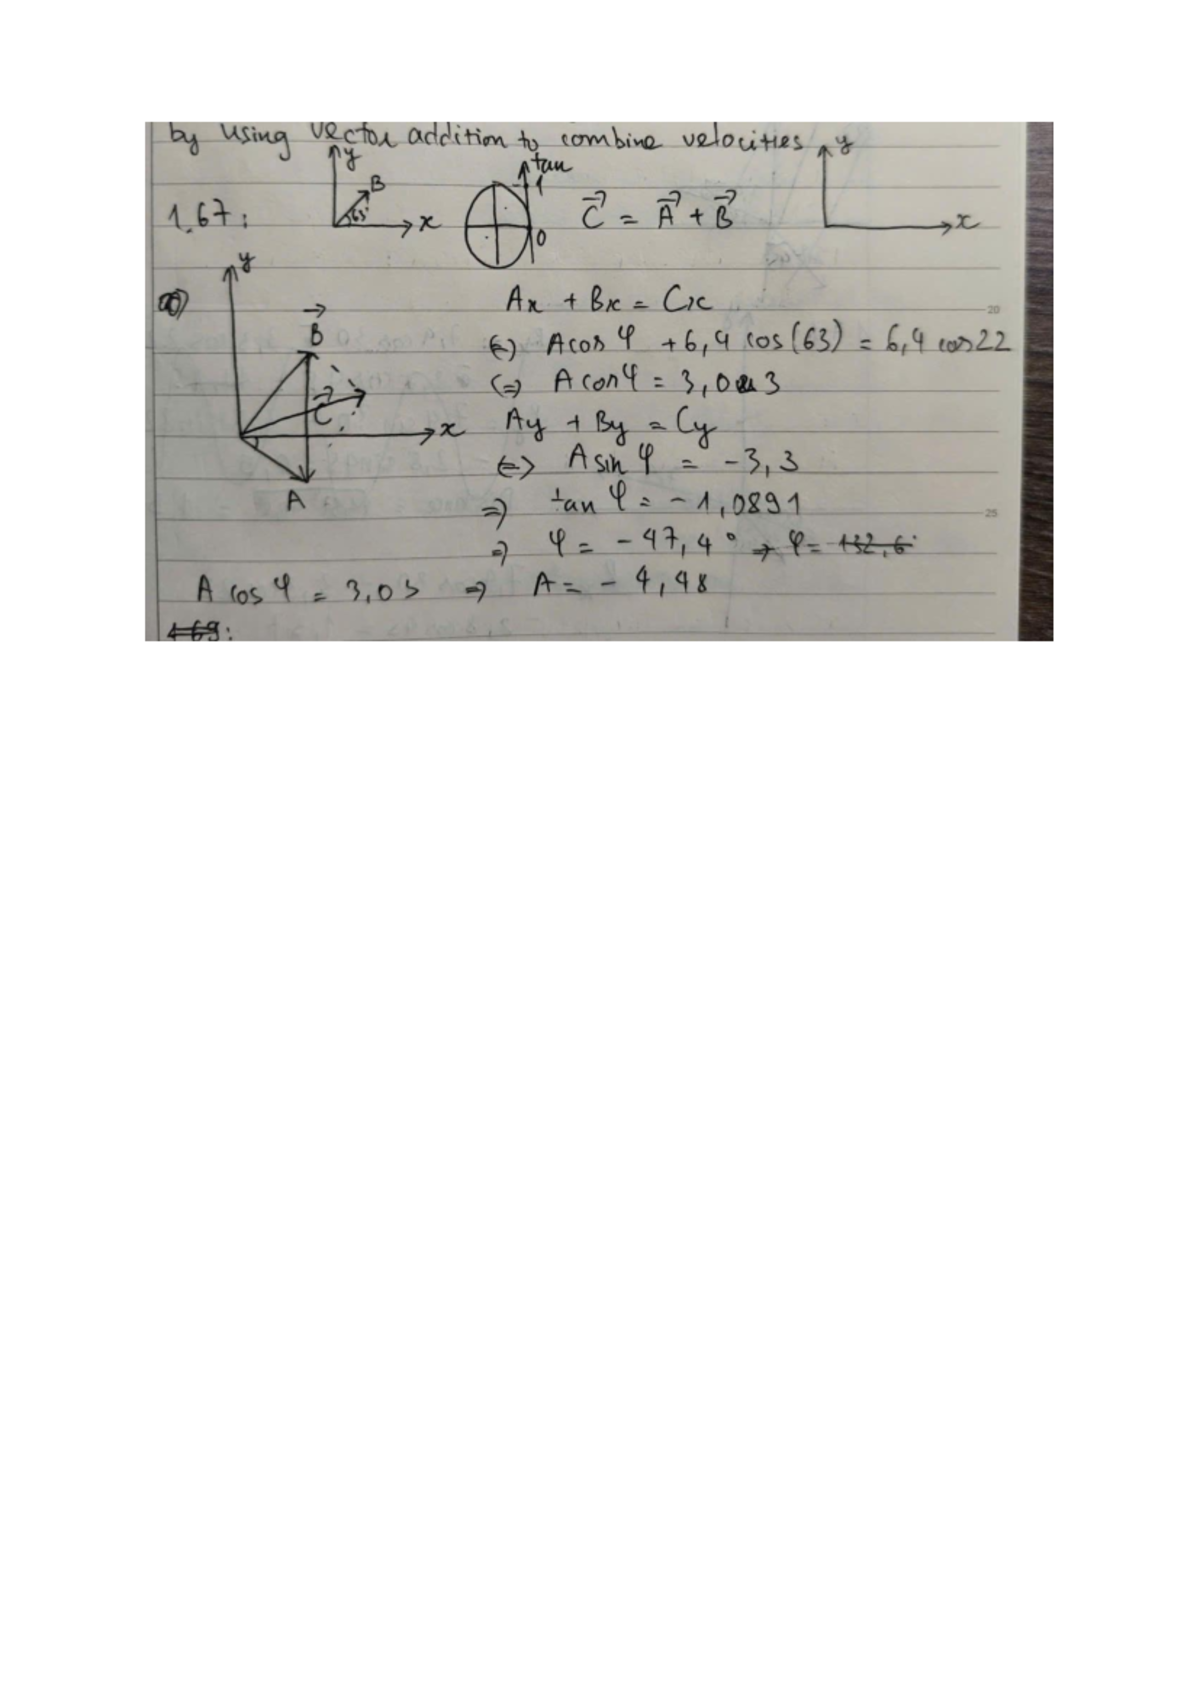 by using vector addition to combine velocities
y
B
63°
x
tan
1
0
y
x
1.67: C = A + B
y
Ax + Bx = Cx
B
C
x
A
(=) A cos φ + 6,4 cos(63) = 6,4 cos 22
(=) A cos φ = 3,03
Ay + By = Cy
(=) A sin φ = -3,3
=) tan φ = -1,0891
=) φ = -47,4° → φ = 132,6°
A cos φ = 3,03 =) A = -4,48
1.69:
20
25